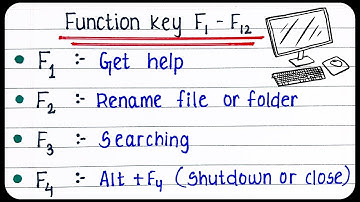 Function key F1 - F12
• F1 :- Get help
• F2 :- Rename file or folder
• F3 :- Searching
• F4 :- Alt + F4 (Shutdown or close)